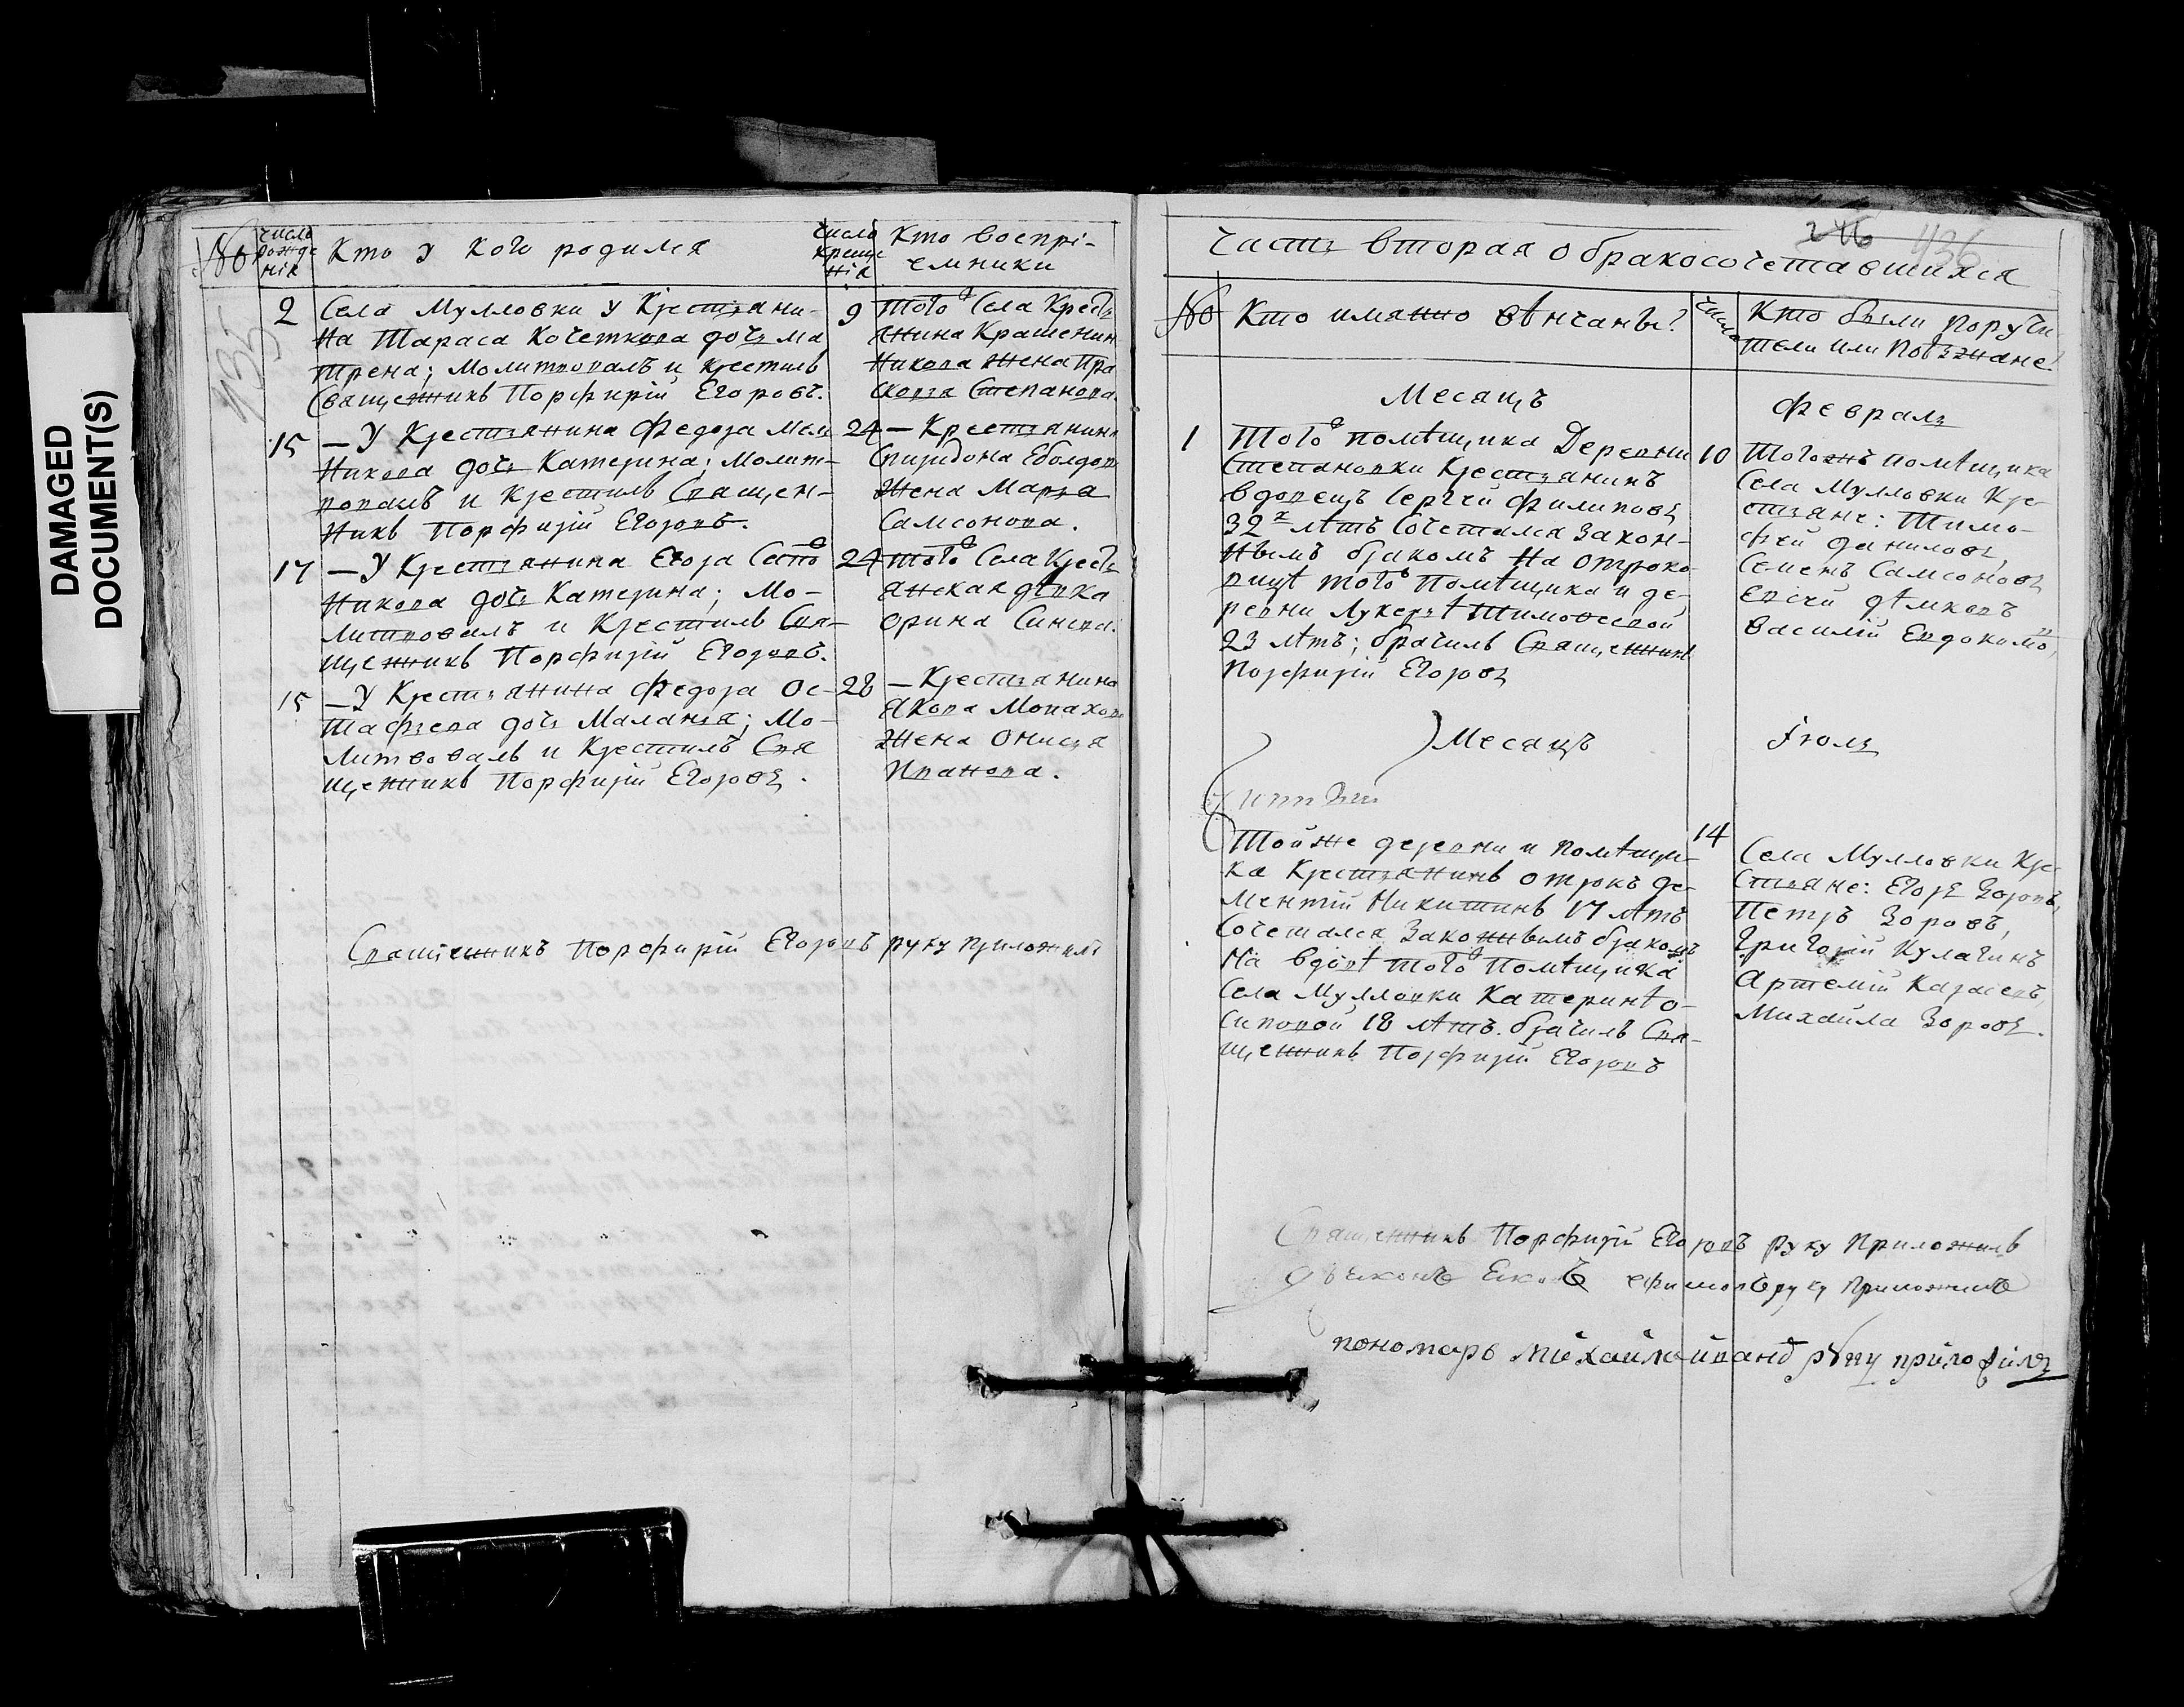 DAMAGED
DOCUMENT(S)
№
число рожденія
Кто у кого родился
число крещенія
Кто воспрі-
емники
2
Села Мулловки у Крестьяни-
на Тараса Кочеткова дочь Ма
трена; Молитвовалъ и крестилъ
Священникъ Порфирій Егоровъ.
9
того Села Кресть
янина Крашенин
никова жена Пра
сковья Степанова.
15
— У Крестьянина Федора Мель
никова дочь Катерина; Молит-
вовалъ и крестилъ Священ-
никъ Порфирій Егоровъ.
24
— Крестьянина
Спиридона
жена Марья
Самсонова.
17
— У Крестьянина Егора
никова дочь Катерина; Мо-
литвовалъ и Крестилъ Свя-
щенникъ Порфирій Егоровъ.
24
того Села Кресть
янская дѣвка
15
— У Крестьянина Федора Ос-
тафьева дочь Маланья; Мо-
литвовалъ и Крестилъ Свя
щенникъ Порфирій Егоровъ.
28
— Крестьянина
Якова Монахова
жена Онисья
Иванова.
Священникъ Порфирій Егоровъ руку приложилъ
246
436
Часть вторая о бракосочетавшихся
№
Кто имянно вѣнчаны?
число
Кто были поручи
тели или Поѣзжане?
Месяцъ
Февраль
1
Того помѣщика Деревни
Степановки Крестьянинъ
вдовецъ Сергей Филиповъ
32х лѣтъ Сочетался Закон-
нымъ бракомъ на отроко-
вицѣ того Помѣщика и де-
ревни Лукерьѣ Тимовеевой
23 лѣтъ; брачилъ Священникъ
Порфирій Егоровъ
10
Тогожъ помѣщика
Села Мулловки Кре-
стьяне: Тимо-
фей Даниловъ,
Семенъ Самсоновъ
Василій Евдокимовъ,
Месяцъ
Іюль
Тойже деревни и помѣщи-
ка Крестьянинъ отрокъ де-
ментій Никитинъ 17 лѣтъ
Сочетался Законнымъ бракомъ
на вдовѣ того Помѣщика
Села Мулловки Катеринѣ о-
сиповой 18 лѣтъ. брачилъ Свя-
щенникъ Порфирій Егоровъ
14
Села Мулловки Кре-
стьяне: Егоръ Зоровъ,
Петръ Зоровъ,
Григорій Кулагинъ
Артемій
Михайла Зоровъ.
Священникъ Порфирій Егоровъ руку Приложилъ
руку приложилъ
пономарь михайла иванъ руку приложилъ